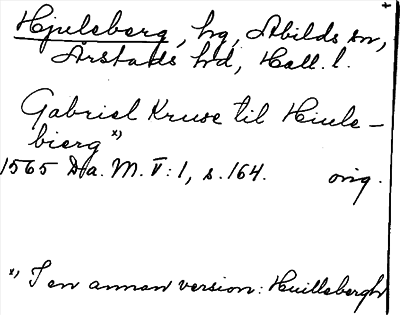 Hjulsberg, hg, Abilds sn,
Årstads hd, Hall. l.
Gabriel Kruse til Hiuls-
bierg*)
1565 Da. M. V: 1, s. 164. orig.
*) I en annan version: Huillsbergh